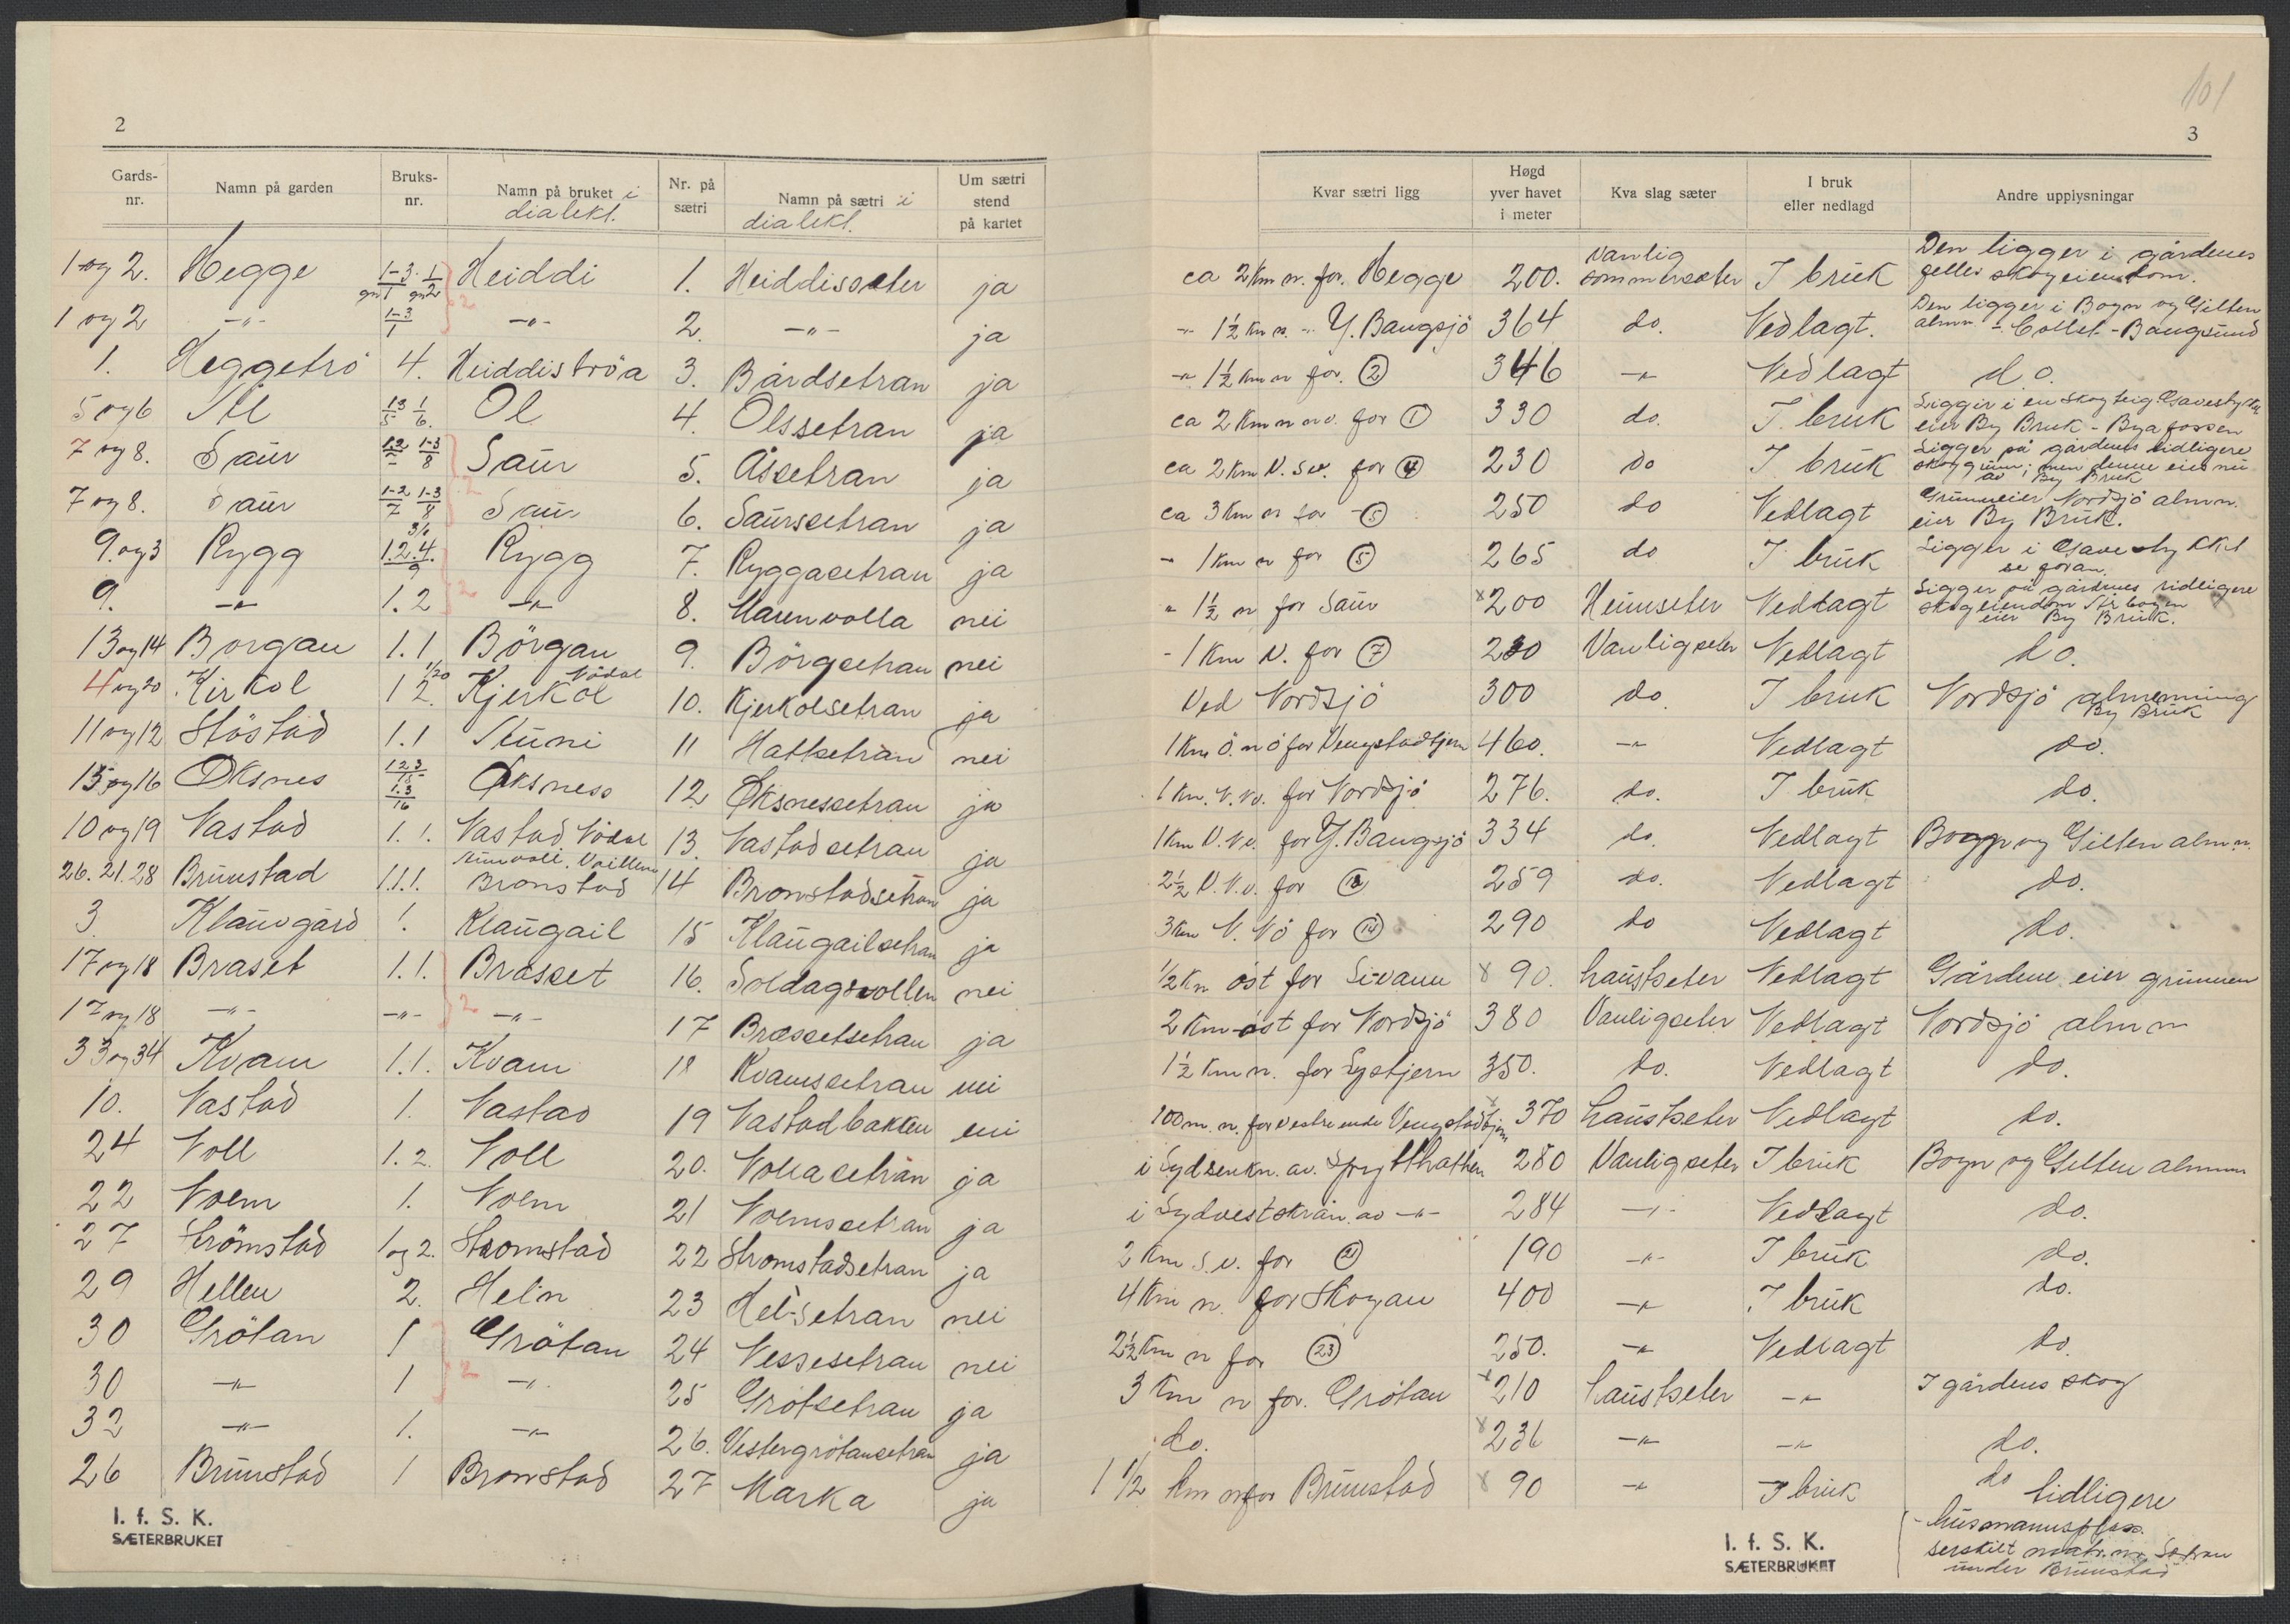 101
2
3
Gards-nr. Namn på garden Bruks-nr. Namn på bruket i dialekt. Nr. på sætri Namn på sætri i dialekt. Um sætri stend på kartet
Kvar sætri ligg Høgd yver havet i meter Kva slag sæter I bruk eller nedlagd Andre upplysningar
1 og 2. Hegge 1-3 1/2 Heiddi 1. Heiddisseter ja ca 2 km n. for. Hegge 200. Vanlig sommerseter I bruk Den ligger i gårdenes felles skogeiendom.
1 og 2 -"- 1-3/1 -"- 2. -"- ja -"- 1½ km n. -"- Y. Bangsjö 364 do. Nedlagt. Den ligger i Bogn og Gilten almn. - Collet - Bangsund
1. Heggetrö 4. Heiddiströa 3. Bårdsetran ja -"- 1½ km n for. (2) 346 -"- Nedlagt d.o.
5 og 6 Øl 13/5 1/6. Öl 4. Ölssetran ja ca 2 km n nv. for (1) 330 do. I bruk Ligger i en skogteig Gavestykket eier By Bruk - Byafossen
7 og 8. Saur 1-3/8 Saur 5. Åssetran ja ca 2 km N. for (4) 230 do I bruk Ligger på gårdens tidligere skoggrunn; men denne eies nu av By Bruk
7 og 8. Saur 1-2/7 1-3/8 Saur 6. Saursetran ja ca 3 km n for (5) 250 do Nedlagt Grunneier Nordsjö almn. eier By Bruk.
9. og 3 Rygg 1.2.4./9 Rygg 7. Ryggasetran ja -"- 1 km n for (5) 265 do I bruk Ligger i Gavestykket se foran.
9. -"- 1.2 -"- 8. Marenvolla nei -"- 1½ n for Saur x200 Heimseter Nedlagt Ligger på gårdenes tidligere skogeiendom eier By Bruk.
13 og 14 Borgan 1.1 Börgan 9. Börgsetran nei - 1 km N. for (7) 280 Vanligseter Nedlagt do.
4 og 20 Kirkol 1 2. 1/20 Kjerkol Nödal 10. Kjerkolsetran ja Ved Nordsjö 300 do I bruk Nordsjö almenning By Bruk
11 og 12 Støstad 1.1 Stuni 11 Hattsetran nei 1 km ö. n ö for Vengstadtjern 460. -"- Nedlagt do.
15 og 16 Øksnes 123/15 1.3/16 Øksness 12 Øksnessetran ja 1 km. N. Nv. for Nordsjö 276. do. I bruk do.
10 og 19 Vastad 1. 1. Vastad Nödal 13. Vastadsetran ja 1 km N. Nv. for Y. Bangsjö 334 do. Nedlagt Bogn og Gilten almn.
26. 21. 28 Brunstad 1.1.1. Bronstad 14 Bronstadsetran ja 2½ N. N.v. for 259 do. Nedlagt do.
3. Klauvgård 1. Klaugail 15 Klaugailsetran ja 3 km N. Nö for (14) 290 do Nedlagt do.
17 og 18 Braset 1.1. Brasset 16. Soldagsvollen nei ½ km öst for x 90. haustseter Nedlagt Gårdene eier grunnen
17 og 18 -"- -"- -"- 17 Brassetsetran ja 2 km öst for Nordsjö 380 Vanligseter Nedlagt Nordsjö almn
33 og 34 Kvam 1.1. Kvam 18 Kvamsetran nei 1½ km n. for Lystjern 350. do. Nedlagt do.
10. Vastad 1. Vastad 19 Vastadbakken nei 100 m. n. for vestre ende Vengstadtjern x370 haustseter Nedlagt do.
24 Voll 1.2. Voll 20. Vollasetran ja i Sydsenkn. av. 280 Vanligseter I bruk Bogn og Gilten almnn
22 Volm 1. Volm 21 Volmssetran ja i Sydvestskrån. av -"- 284 -"- Nedlagt do.
27 Strömstad 1 og 2. Stromstad 22 Stromstadsetran ja 2 km S.v. for (21) 190 -"- I bruk do.
29 Hellen 2. Helin 23 Hel-setran nei 4 km n. for Skogan 400 -"- I bruk do.
30 Grötan 1 Grötan 24 Vessesetran nei 2½ km n for (23) 250. -"- Nedlagt do.
30 -"- 1 -"- 25 Grötsetran ja 3 km n for. Grötan x210 haustseter -"- I gårdens skog
32 -"- 1. -"- 26. Vestergrötansetran ja do. x236 -"- -"- do.
26 Brunstad 1 Bronstad 27 Marka ja 1 ½ km n for Brunstad x 90 -"- I bruk do tidligere husmannsplass. serskilt matr. nr. Setran under Brunstad
I. f. S. K.
SÆTERBRUKET
I. f. S. K.
SÆTERBRUKET